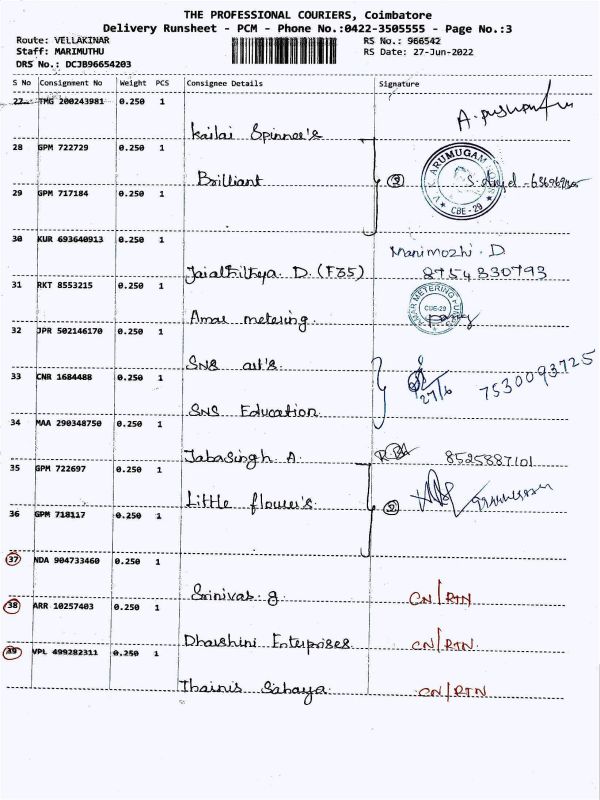 THE PROFESSIONAL COURIERS, Coimbatore
Delivery Runsheet - PCM - Phone No.:0422-3505555 - Page No.:3
Route: VELLAKINAR RS No.: 966542
Staff: MARIMUTHU RS Date: 27-Jun-2022
DRS No.: DCJB96654203
S No Consignment No Weight PCS Consignee Details Signature
27 TMG 200243981 0.250 1
Kailai Spinner's
28 GPM 722729 0.250 1
Brilliant 2 V.K. ARUMUGAM CBE-29
29 GPM 717184 0.250 1
30 KUR 693640913 0.250 1 Manimozhi. D
Jaialhilhya. D. (F35) 8754830793
31 RKT 8553215 0.250 1
Amar metering. AMAR METERING PUMPS CBE-29
32 JPR 502146170 0.250 1
SNS art's
27/6 7530093725
33 CNR 1684488 0.250 1
SNS Education
34 MAA 290348750 0.250 1
Jabasingh A. 8525887101
35 GPM 722697 0.250 1
Little flower's 2
36 GPM 718117 0.250 1
37 NDA 904733460 0.250 1
Srinivas g CN/RTN
38 ARR 10257403 0.250 1
Dharshini Enterprises CN/RTN.
39 VPL 499282311 0.250 1
Thainis Sahaya CN/RTN